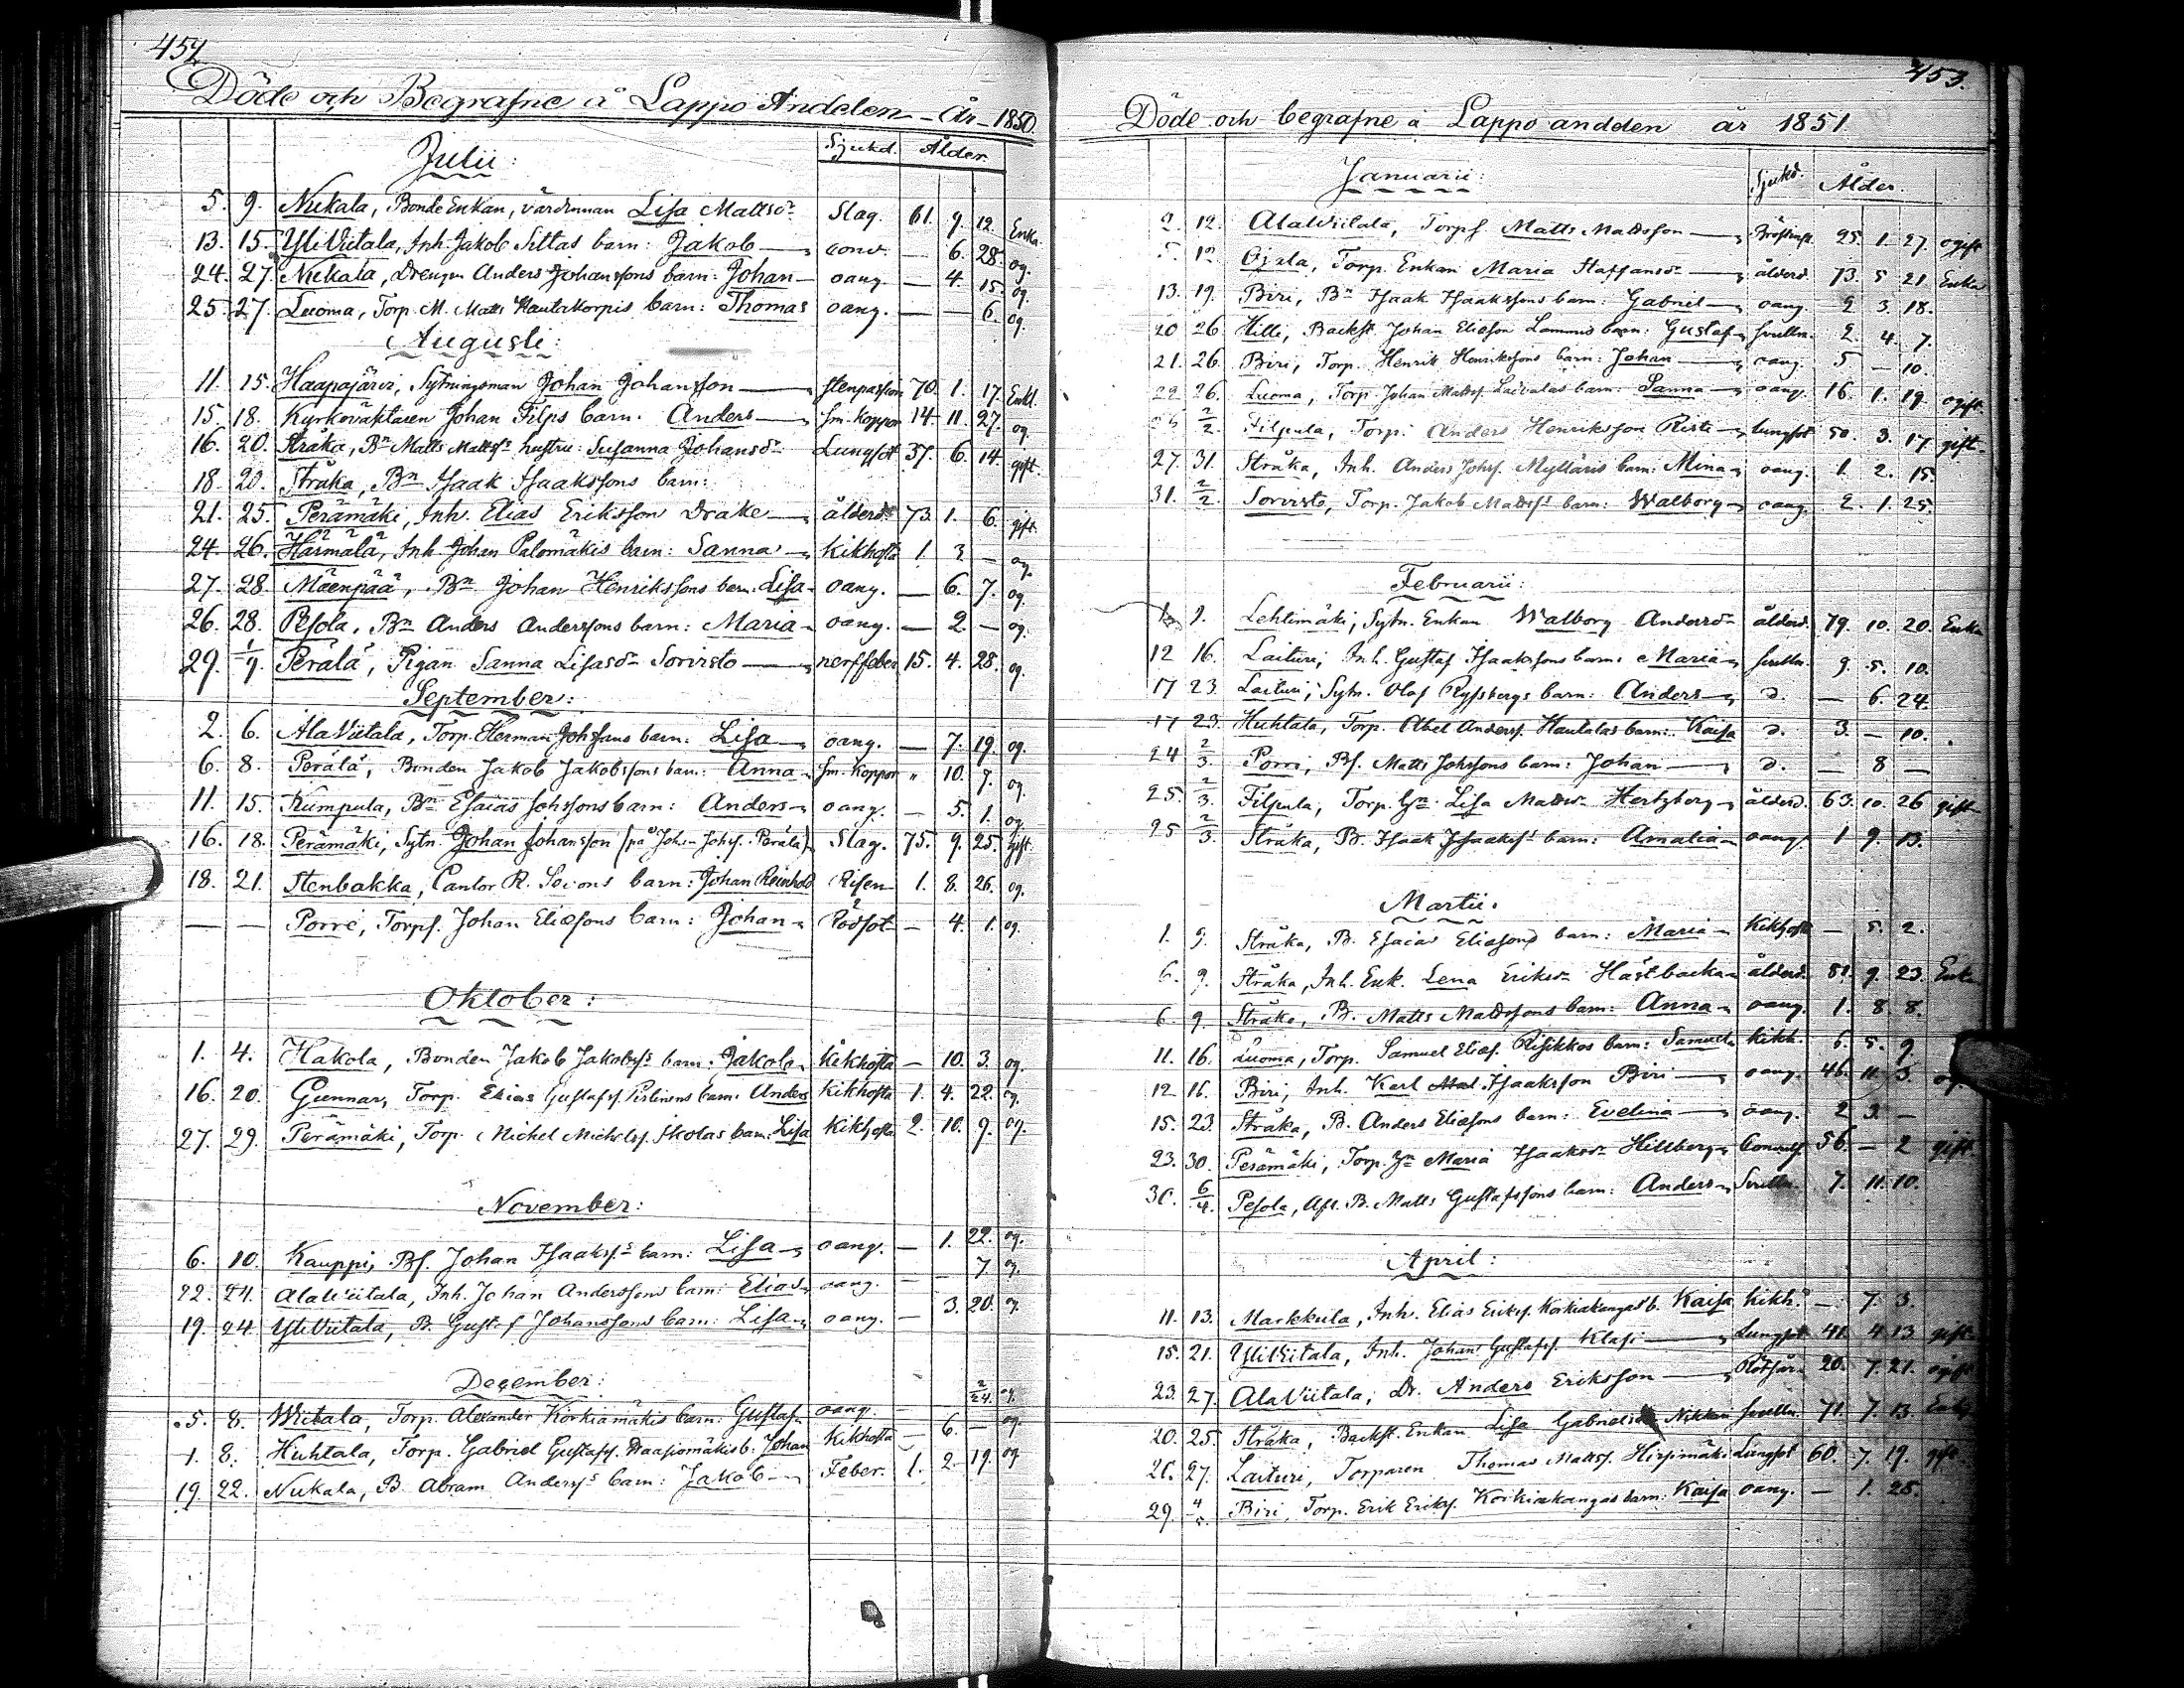 454
Döde och Begrafne å Lappo Andelen - År - 1850.
Sjukd. Ålder.
Julii:
5. 9. Nukala, Bonde Enkan, värdinnan Lisa Mattsdr Slag. 61. 9. 12. Enka
13. 15. YliViitala, Inh. Jakob Sillas barn: Jakob conv. — 6. 28. og.
24. 27. Nukala, Drengen Anders Johanssons barn: Johan oang. — 4. 15. og.
25. 27. Luoma, Torp. M. Matts Hautakorpis barn: Thomas oang. — — 6. og.
Augusti:
11. 15. Haapajärvi, Sytningsman Johan Johansson stenpassion 70. 1. 17. Enkl.
15. 18. Kyrkovaktaren Johan Filps barn. Anders Sm. Koppor 14. 11. 27. og
16. 20. Stråka, Bn Matts Mattss hustru: Susanna Johansdr Lungsot 37. 6. 14. gift.
18. 20. Stråka, Bn Isaak Isaakssons barn:
21. 25. Perämäki, Inh. Elias Eriksson Drake ålderd. 73. 1. 6. gift.
24. 26. Härmälä, Inh. Johan Palomäkis barn: Sanna Kikhosta 1. 3 — og.
27. 28. Mäenpää, Bn Johan Henrikssons barn: Lisa oang. — 6. 7. og.
26. 28. Pesola, Bn Anders Anderssons barn: Maria oang. — 2 — og.
29. 1/9. Perälä, Pigan Sanna Lisasdr Sorvisto nerffeber 15. 4. 28. og.
September:
2. 6. AlaViitala, Torp. Herman Johssons barn: Lisa oang. — 7. 19. og.
6. 8. Perälä, Bonden Jakob Jakobssons barn: Anna Sm. Koppor " 10. 7. og.
11. 15. Kumpula, Bn Esaias Johssons barn: Anders oang. — 5. 1. og
16. 18. Perämäki, Sytn. Johan Johansson (på Johan Johss. Perälä) Slag. 75. 9. 25. gift.
18. 21. Stenbakka, Cantor R. Socons barn: Johan Reinhold Risen 1. 8. 26. og.
— — Porre, Torps. Johan Eliæsons barn: Johan Rödsot — 4. 1. og.
Oktober:
1. 4. Hakola, Bonden Jakob Jakobss barn: Jakob Kikhosta — 10. 3. og.
16. 20. Gunnar, Torp. Elias Gustafs. barn: Anders Kikhosta 1. 4. 22. og.
27. 29. Perämäki, Torp. Michel Michelss. Skolas barn: Lisa Kikhosta 2. 10. 9. og.
November:
6. 10. Kauppi, Bs. Johan Isaakss barn: Lisa oang. — 1. 22. og.
22. 24. AlaViitala, Inh. Johan Anderssons barn: Elias oang. — — 7 og.
19. 24. YliViitala, B. Gustaf Johanssons barn: Lisa oang. — 3. 20. og.
December:
5. 8. Wiitala, Torp. Alexander Korkiamäkis barn: Gustaf oang. — 2/24. og.
1. 8. Huhtala, Torp. Gabriel Gustafss. Waaiomäkis b: Johan Kikhosta — 6. — og.
19. 22. Nukala, B. Abram Anderss barn: Jakob Feber. 1. 2. 19. og
453.
Döde och begrafne å Lappo andelen år 1851.
Sjukd. Ålder.
Januarii:
2. 12. AlaWiitala, Torps. Matts Mattsson Bröstinfl. 25. 1. 27. ogift
5. 12. Ojala, Torp. Enkan Maria Staffansdr ålderd. 73. 5 21 Enka
13. 19. Biri, Bn Isaak Isaakssons barn: Gabriel oang. 2 3. 18.
20 26. Hille, Backst. Johan Eliæson Lammis barn: Gustaf svulln. 2. 4. 7.
21. 26. Biri, Torp. Henrik Henrikssons barn: Johan oang. 5 — 10.
22 26. Luoma, Torp. Johan Mattss. barn: Sanna oang. 16. 1. 19. ogift.
26 2/2. Filpula, Torp. Anders Henriksson Riste lungsot 50. 3. 17. gift.
27. 31. Stråka, Inh. Anders Johss. Mylläris barn: Mina oang. 1. 2. 15.
31. 2/2. Sorvisto, Torp. Jakob Mattss barn: Walborg oang. 2. 1. 25.
Februarii:
9. Lehtimäki, Sytn. Enkan Walborg Andersdr ålderd. 79. 10. 20. Enka
12 16. Laituri, Inh. Gustaf Isaakssons barn: Maria svulln. 9. 5. 10.
17 23. Laituri, Sytn. Olof Ryssbergs barn: Anders d. — 6. 24.
17 23. Huhtala, Torp. Abel Anderss. Hautalas barn: Kaisa d. 3. — 10.
24 2/3. Porri, Bs. Matts Johssons barn: Johan d. — 8 —
25. 2/3. Filpula, Torp. hn Lisa Mattsdr Hertzberg ålderd. 63. 10. 26 gift
25 2/3. Stråka, B. Isaak Isaakss barn: Amalia oang. 1 9. 13.
Martii.
1. 9. Stråka, B. Esaias Eliæsons barn: Maria Kikhosta — 5. 2.
6. 9. Stråka, Inh. Enk. Lena Eriksdr Hästbacka ålderd. 81. 9. 23. Enka
6. 9. Stråka, B. Matts Mattssons barn: Anna oang. 1. 8 8.
11. 16. Luoma, Torp. Samuel Eliæs. Risikkos barn: Samuel kikh. 6. 5. 9
12 16. Biri, Inh. Karl Isaaksson Biri oang. 46. 11. 3. og.
15. 23. Stråka, B. Anders Eliæsons barn: Evelina oang. 2 3. —
23. 30. Perämäki, Torp. hn Maria Isaaksdr Hillberg Convuls. 56. — 2 gift.
30. 6/4. Pesola, Afs. B. Matts Gustafssons barn: Anders Svulln. 7. 11. 10.
April:
11. 13. Markkula, Inh. Elias Erikss. Korkiakangas b. Kaisa kikh. — 7. 3.
15. 21. YliViitala, Inh. Johan Gustafss. Klasi Lungsot 41. 4 13 gift.
23. 27. AlaViitala, Dr. Anders Eriksson Rötsår 20. 7. 21. ogift
20. 25. Stråka, Backst. Enkan Lisa Gabrielsdr svulln. 71. 7. 13. Enka
21. 27. Laituri, Torparen Thomas Mattss. Hirsimäki Lungsot 60. 7. 19. gift.
29. 4/5. Biri, Torp. Erik Erikss. Korkiakangas barn: Kaisa oang. — 1. 25.